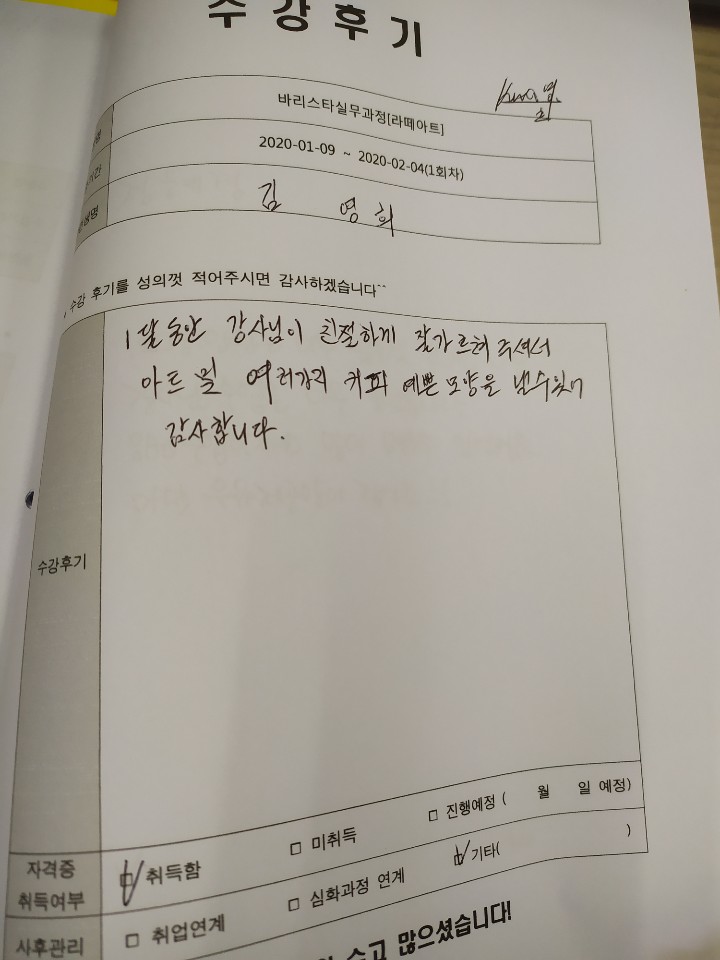 수강후기
바리스타실무과정[라떼아트]
2020-01-09 ~ 2020-02-04(1회차)
김 영 희
수강 후기를 성의껏 적어주시면 감사하겠습니다~~
1달동안 강사님이 친절하게 잘가르혀 주셔서
아트 및 여러가지 커피 예쁜 모양을 낼수있어
감사합니다.
수강후기
자격증
취득여부
취득함 □ 미취득 □ 진행예정 ( 월 일 예정)
사후관리
□ 취업연계 □ 심화과정 연계 기타( )
수고 많으셨습니다!